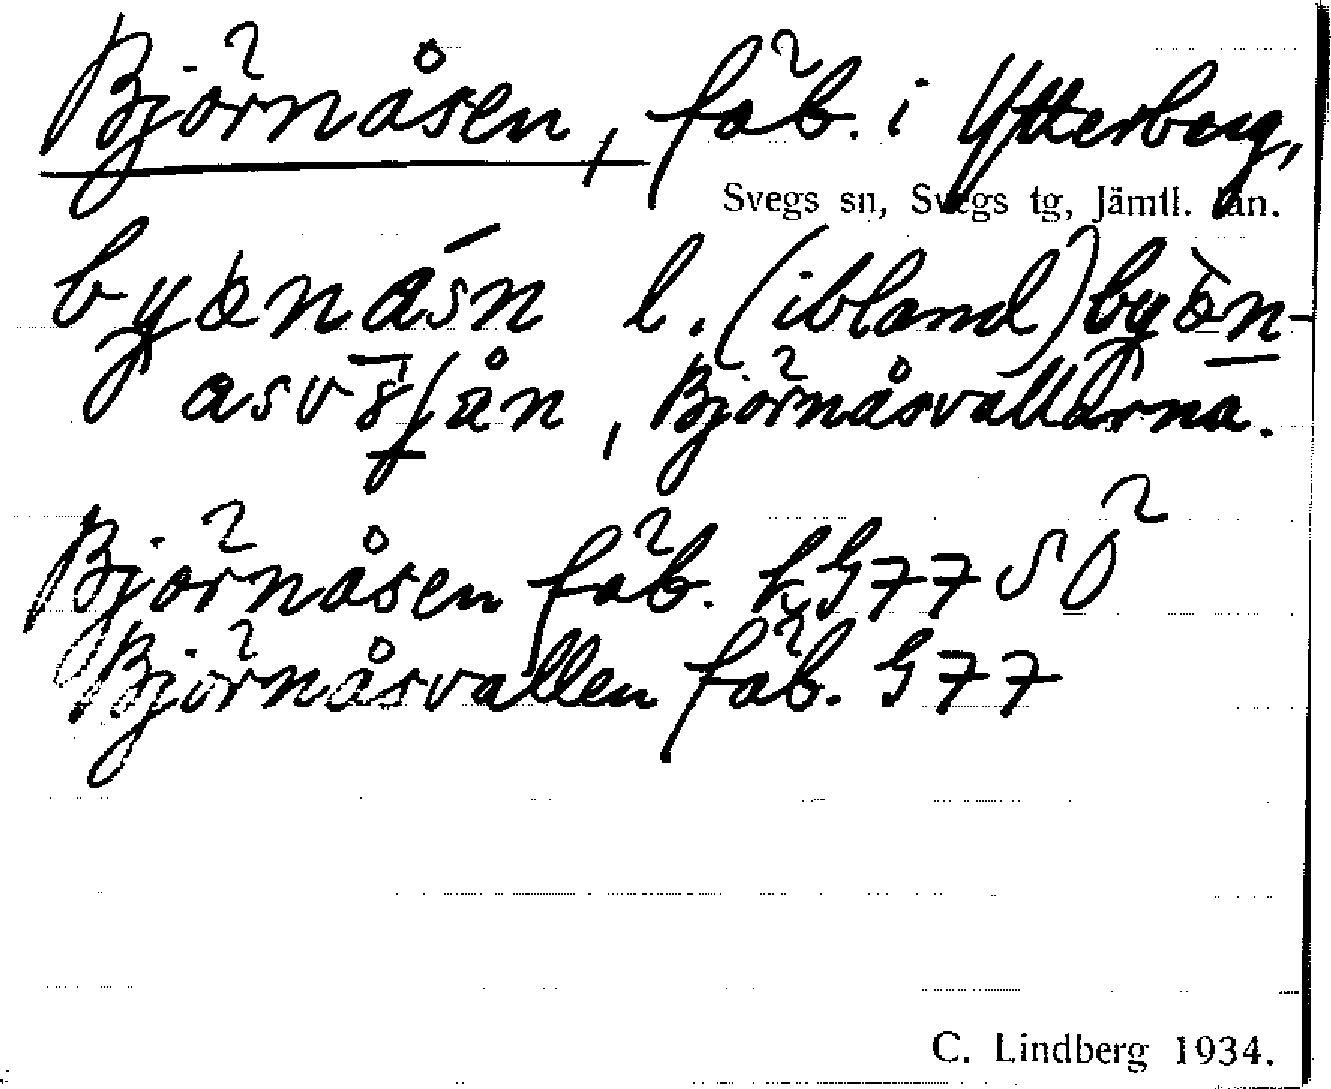 Björnåsen, fäb. i Ytterberg,
Svegs sn, Svegs tg, Jämtl. län.
l. (ibland)
, Björnåsvallarna.
Björnåsen fäb. k, G77 SÖ
Björnåsvallen fäb. G77
C. Lindberg 1934.